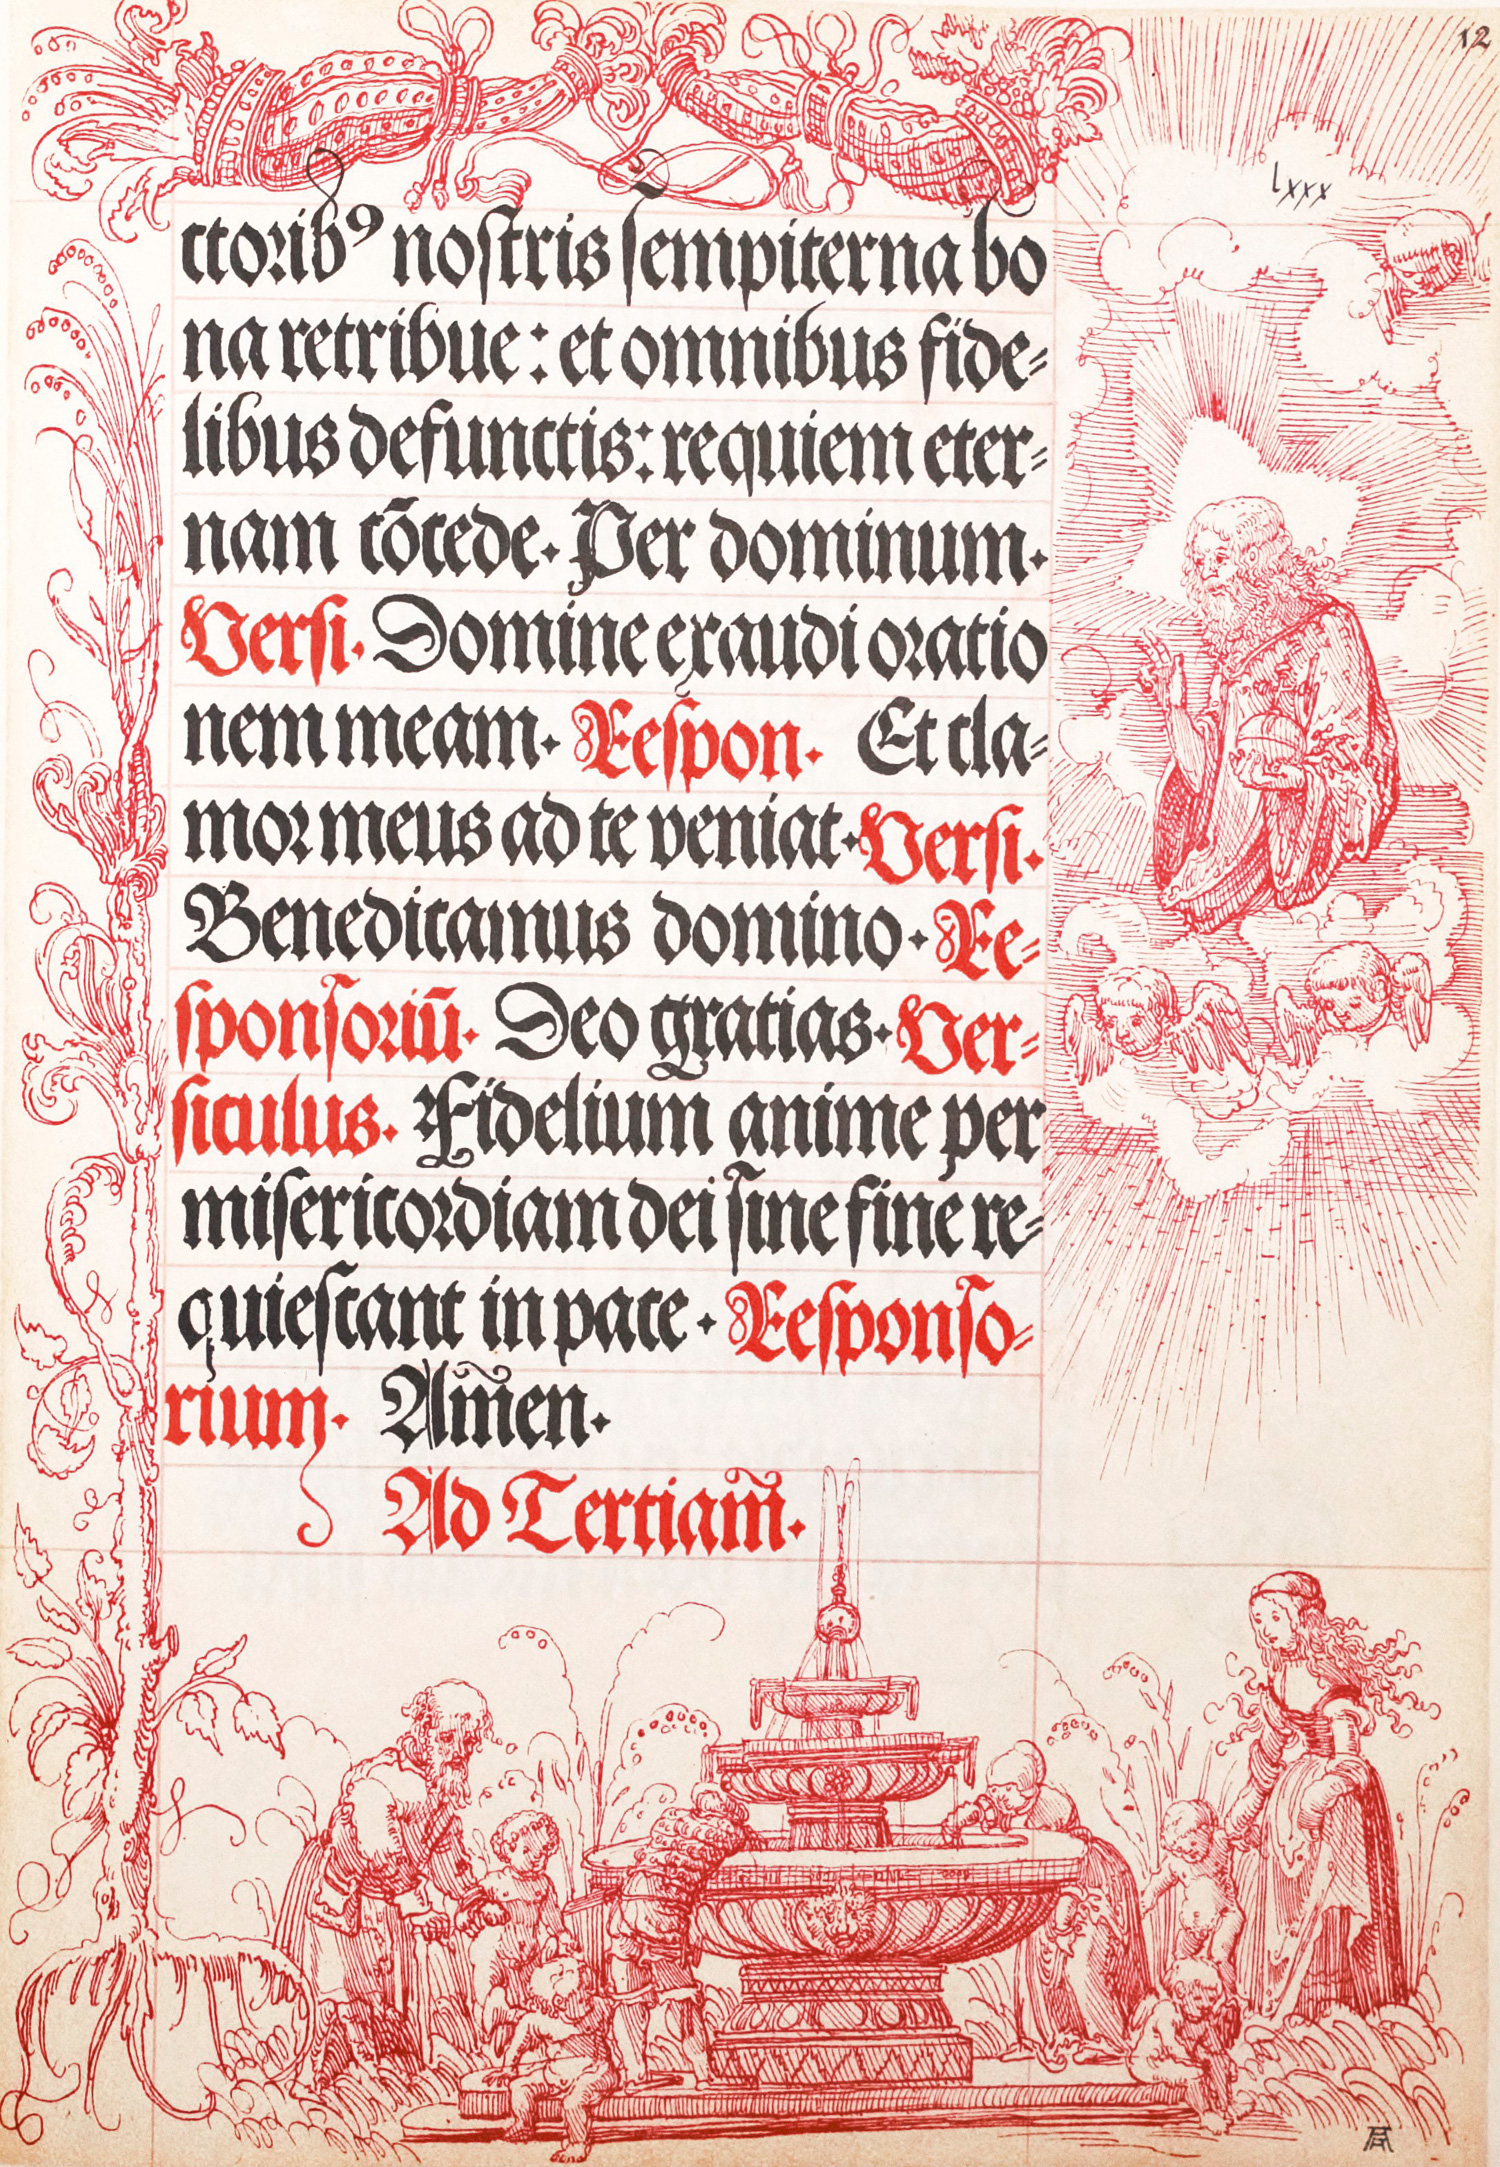 12
lxxx
ctoribꝰ nostris sempiterna bo
na retribue: et omnibus fide=
libus defunctis: requiem eter=
nam cōcede. Per dominum.
Versi. Domine exaudi oratio
nem meam. Respon. Et cla=
mor meus ad te veniat. Versi.
Benedicamus domino. Re=
sponsoriū. Deo gratias. Ver=
siculus. Fidelium anime per
misericordiam dei sine fine re=
quiescant in pace. Responso=
rium. Amen.
Ad Tertiam.
AD